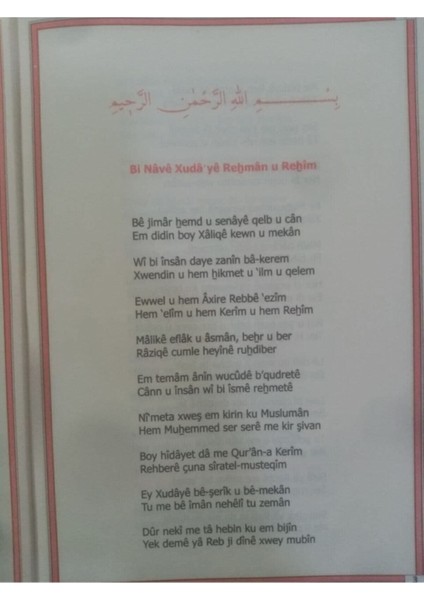 بِسْــــــــمِ اللهِ الرَّحْمٰنِ الرَّحِيمِ
Bi Nâvê Xudâ'yê Reḫmân u Reḫîm
Bê jimâr ḫemd u senâyê qelb u cân
Em didin boy Xâliqê kewn u mekân
Wî bi însân daye zanîn bâ-kerem
Xwendin u hem ḫikmet u 'ilm u qelem
Ewwel u hem Âxire Rebbê 'ezîm
Hem 'elîm u hem Kerîm u hem Reḫîm
Mâlikê eflâk u âsmân, beḫr u ber
Râziqê cumle heyînê ruḫdiber
Em temâm ânîn wucûdê b'qudretê
Cânn u însân wî bi îsmê reḫmetê
Nî'meta xweş em kirin ku Muslumân
Hem Muḫemmed ser serê me kir şivan
Boy hîdâyet dâ me Qur'ân-a Kerîm
Rehberê çuna sîratel-musteqîm
Ey Xudâyê bê-şerîk u bê-mekân
Tu me bê îmân nehêlî tu zemân
Dûr nekî me tâ hebin ku em bijîn
Yek demê yâ Reb ji dînê xwey mubîn